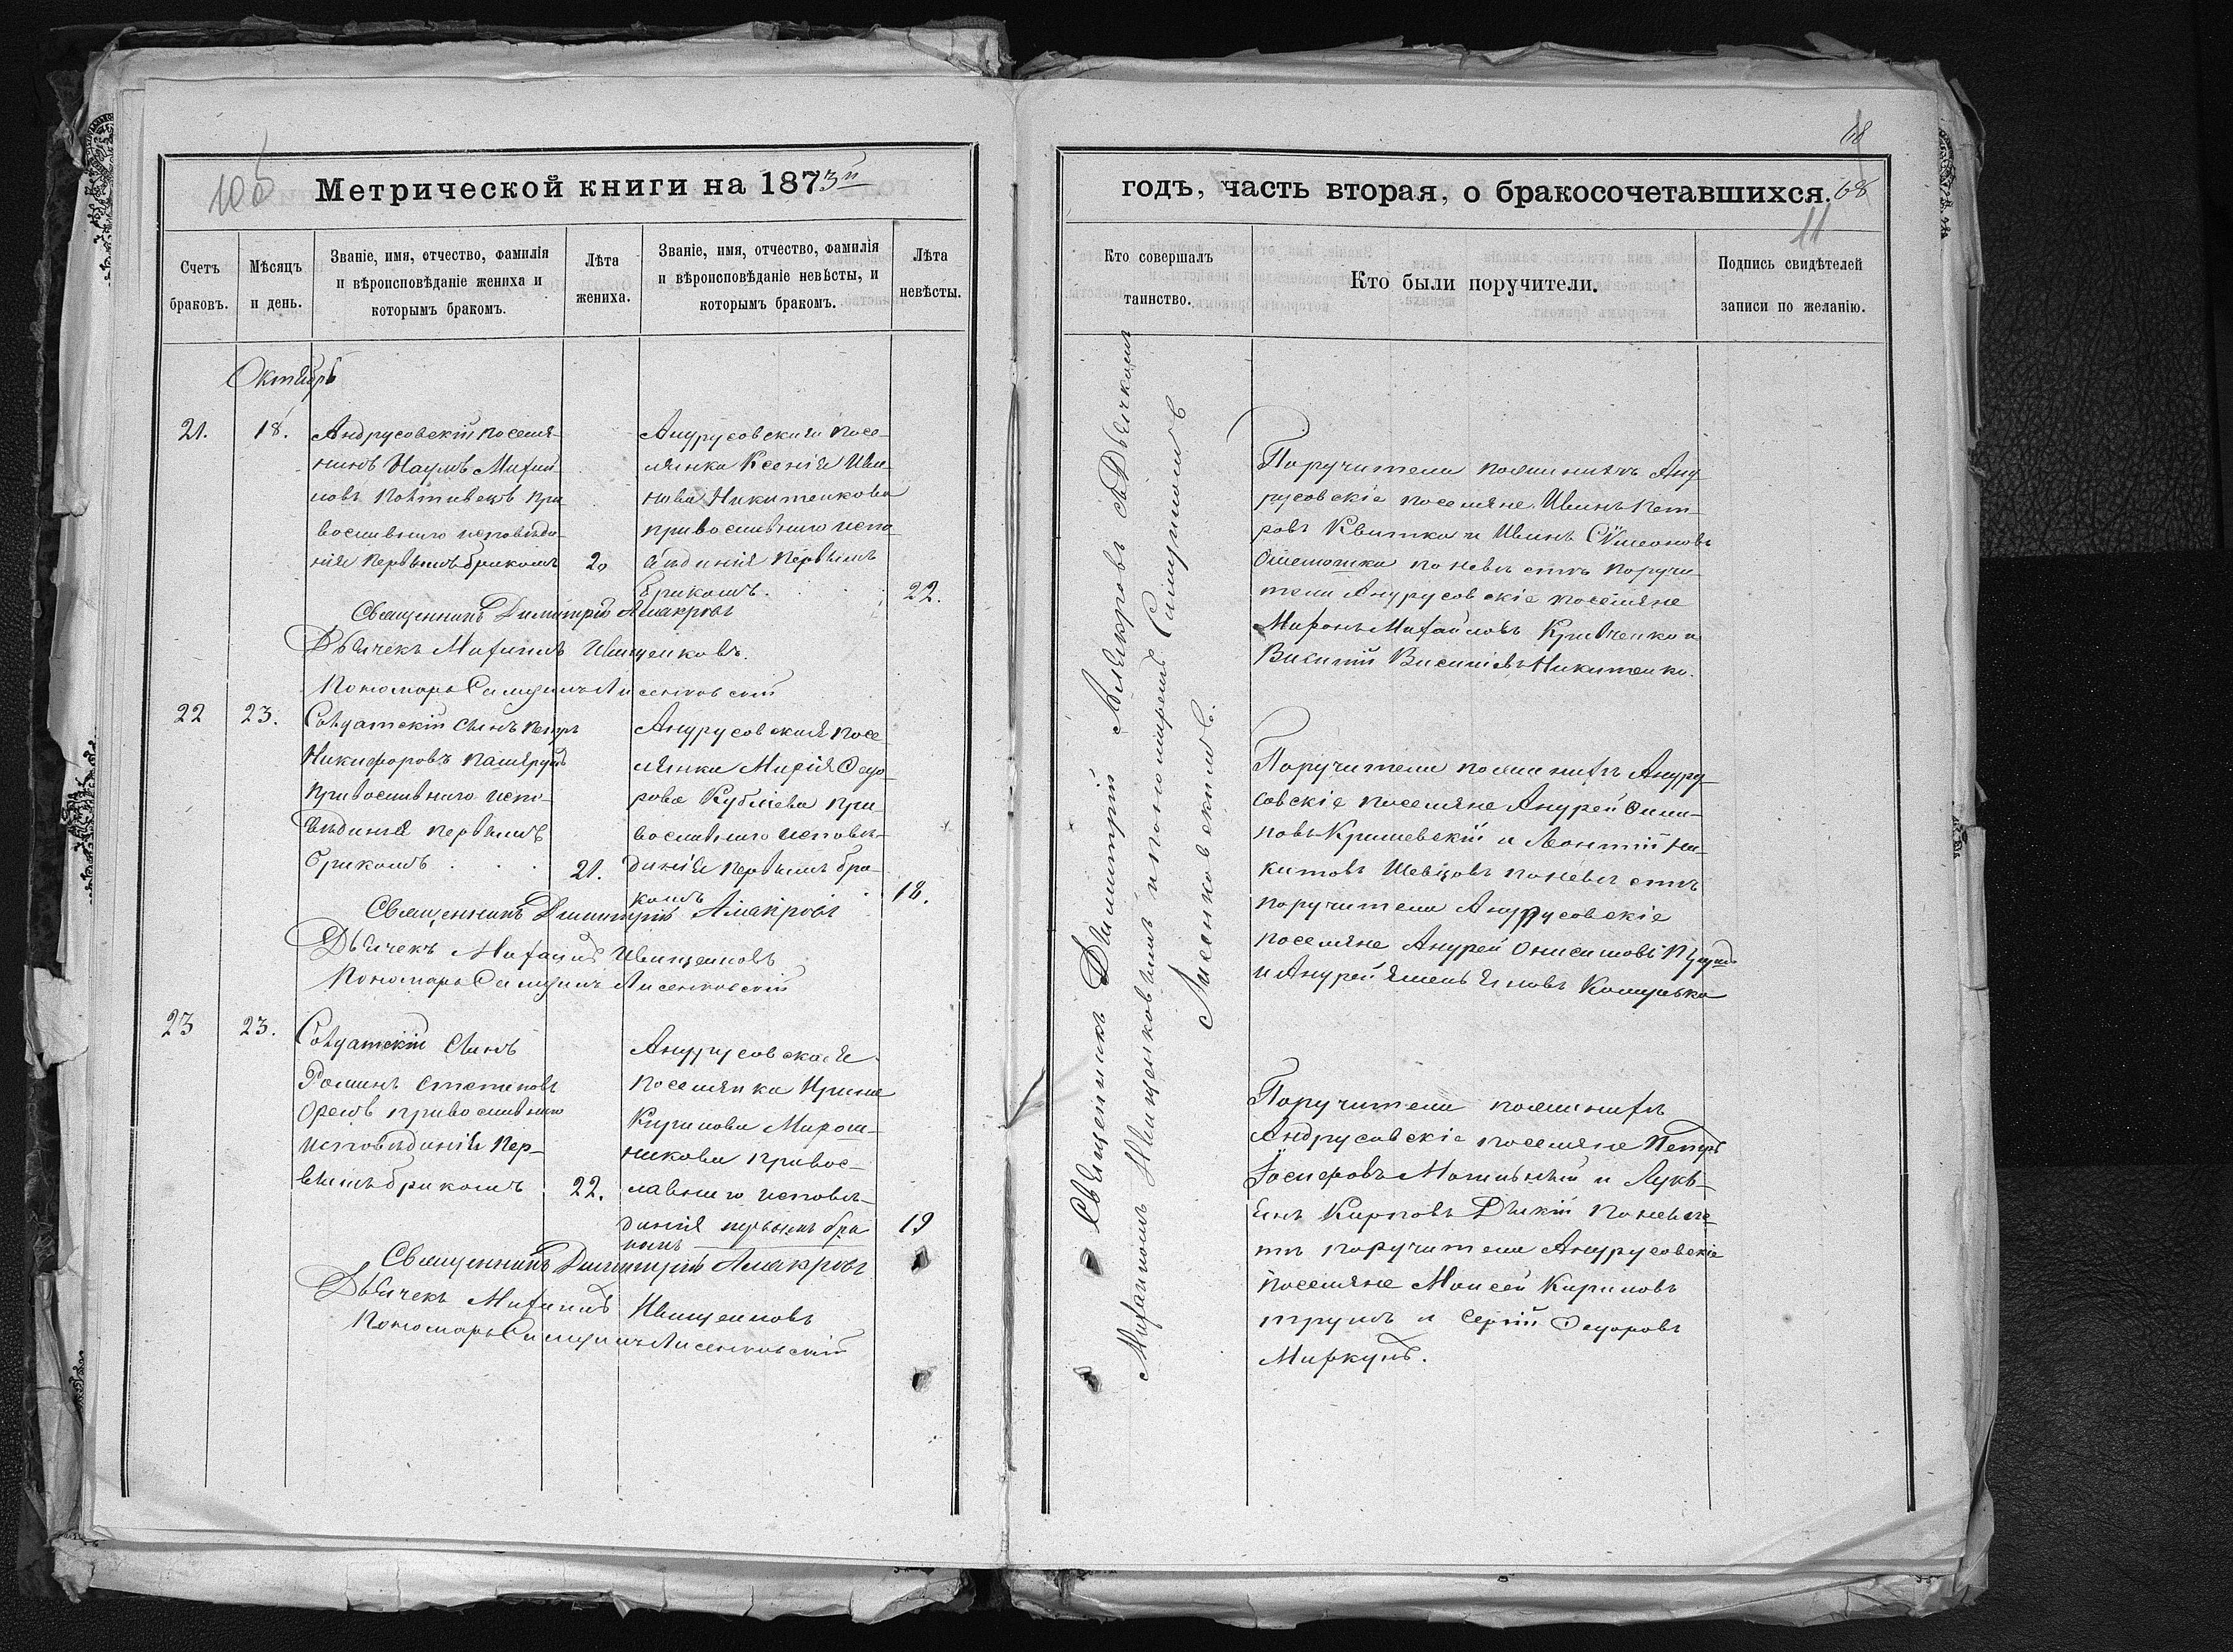 Метрической книги на 1873й
Счетъ браковъ.
Мѣсяцъ и день.
Званіе, имя, отчество, фамилія
и вѣроисповѣданіе жениха и
которымъ бракомъ.
Лѣта жениха.
Званіе, имя, отчество, фамилія
и вѣроисповѣданіе невѣсты, и
которымъ бракомъ.
Лѣта невѣсты.
Октябрь
21.
18.
Андрусовскій поселя-
нинъ Наумъ Михай-
ловъ пра
вославнаго исповѣда-
нія первымъ бракомъ
20
Андрусовская посе-
лянка Ксенія Ива-
нова Никитенкова
православнаго испо-
вѣданія первымъ
бракомъ.
22.
Священникъ Димитрій
Дьячекъ Михаилъ Иващенковъ.
Пономарь Лисенковскій
22
23.
Солдатскій сынъ Петръ
Никифоровъ
православнаго испо-
вѣданія первымъ
бракомъ
21.
Андрусовская посе
лянка Марія Ѳедо-
рова Кублиева пра-
вославнаго исповѣ-
данія первымъ бра-
комъ
18.
Священникъ Димитрій
Дьячекъ Михаилъ Иващенковъ
Пономарь Лисенковскій
23
23.
Солдатскій сынъ
Романъ Степановъ
Орелъ православнаго
исповѣданія пер-
вымъ бракомъ
22.
Андрусовская
поселянка Ирина
Кирилова Мирош-
никова правос-
лавнаго исповѣ-
данія первымъ бра
комъ
19
Священникъ Димитрій
Дьячекъ Михаилъ Иващенковъ
Пономарь Лисенковскій
68
годъ, часть вторая, о бракосочетавшихся.
68
11
Кто совершалъ таинство.
Кто были поручители.
Подпись свидѣтелей
записи по желанію.
Священникъ Димитрій съ Дьячкомъ
Михаиломъ Иващенковымъ и пономаремъ
Лисенковскимъ.
Поручители по женихѣ Анд
русовскіе поселяне Иванъ Пет-
ровъ Квитка и Иванъ Сѵмеоновъ
по невѣстѣ поручи-
тели Андрусовскіе поселяне
Миронъ Михайловъ Кравченко и
Василій Васильевъ Никитенко.
Поручители по женихѣ Андру-
совскіе поселяне Андрей
Кришевскій и Леонтій Ни-
китовъ Шевцовъ по невѣстѣ
поручители Андрусовскіе
поселяне Андрей Онисимовъ
и Андрей Емельяновъ
Поручители по женихѣ
Андрусовскіе поселяне Петръ
Іосифовъ и Лукь-
янъ Карповъ Дикій по невѣс-
тѣ поручители Андрусовскіе
поселяне Моисей Кириловъ
и Сергій Ѳедоровъ